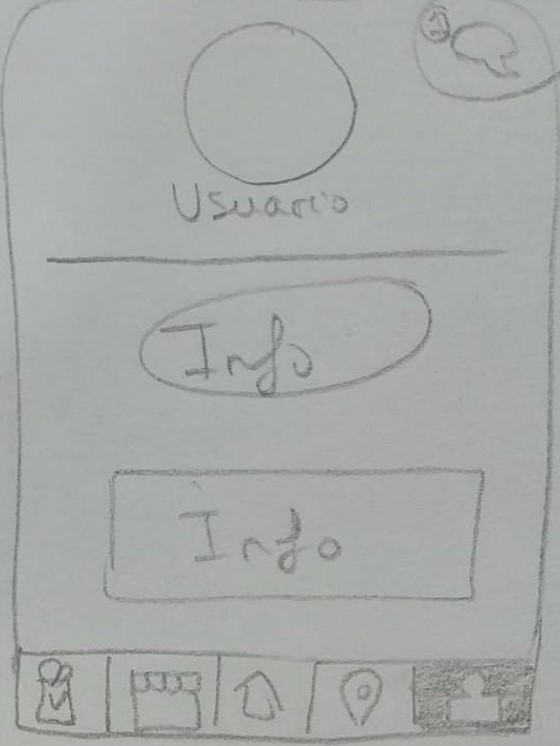 1
Usuario
Info
Info